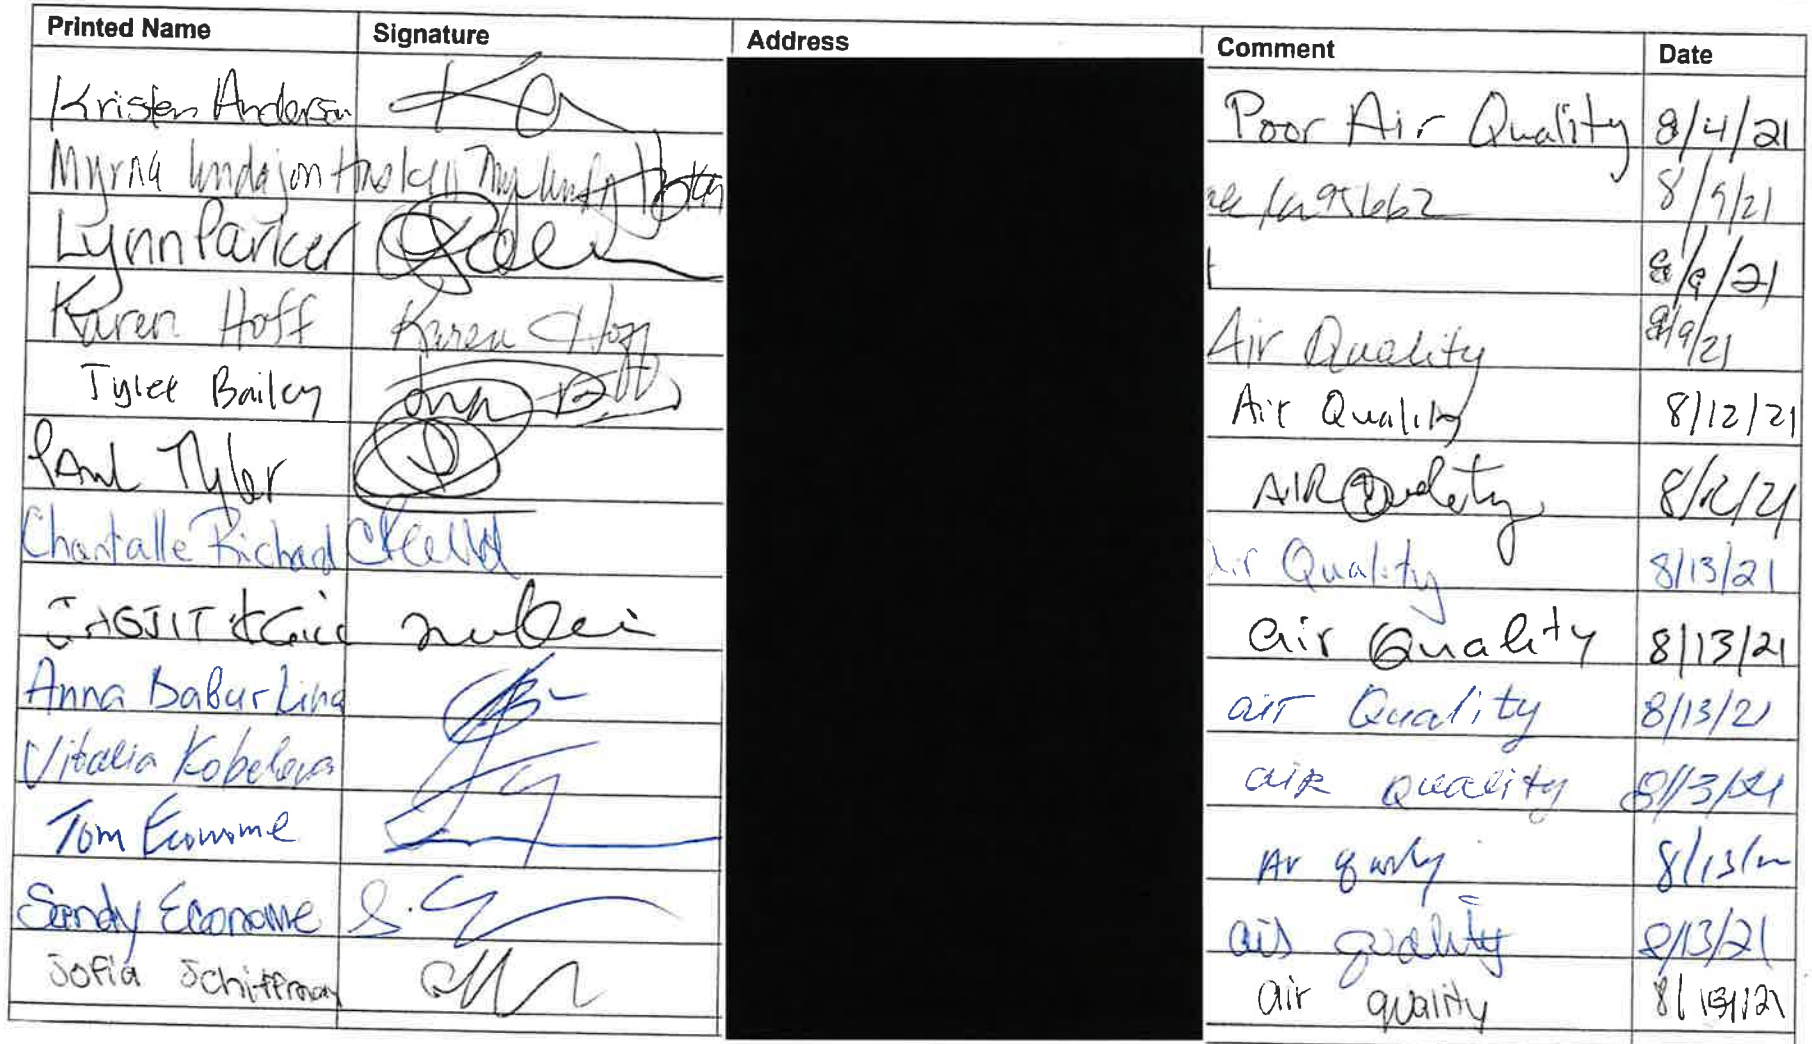 Printed Name Signature Address Comment Date
Kristen Anderson Poor Air Quality 8/4/21
Myrna 95662 8/9/21
Lynn Parker 8/9/21
Karen Hoff Karen Hoff Air Quality 8/9/21
Tyler Bailey Air Quality 8/12/21
Paul Tyler AIR Quality 8/12/21
Chantalle Richard Air Quality 8/13/21
JAGJIT air Quality 8/13/21
Anna Baburkina air Quality 8/13/21
Vitalia Kobeleva air quality 8/13/21
Tom Econome Air quality 8/13/21
Sandy Econome S. air quality 8/13/21
Sofia Schiffman air quality 8/13/21